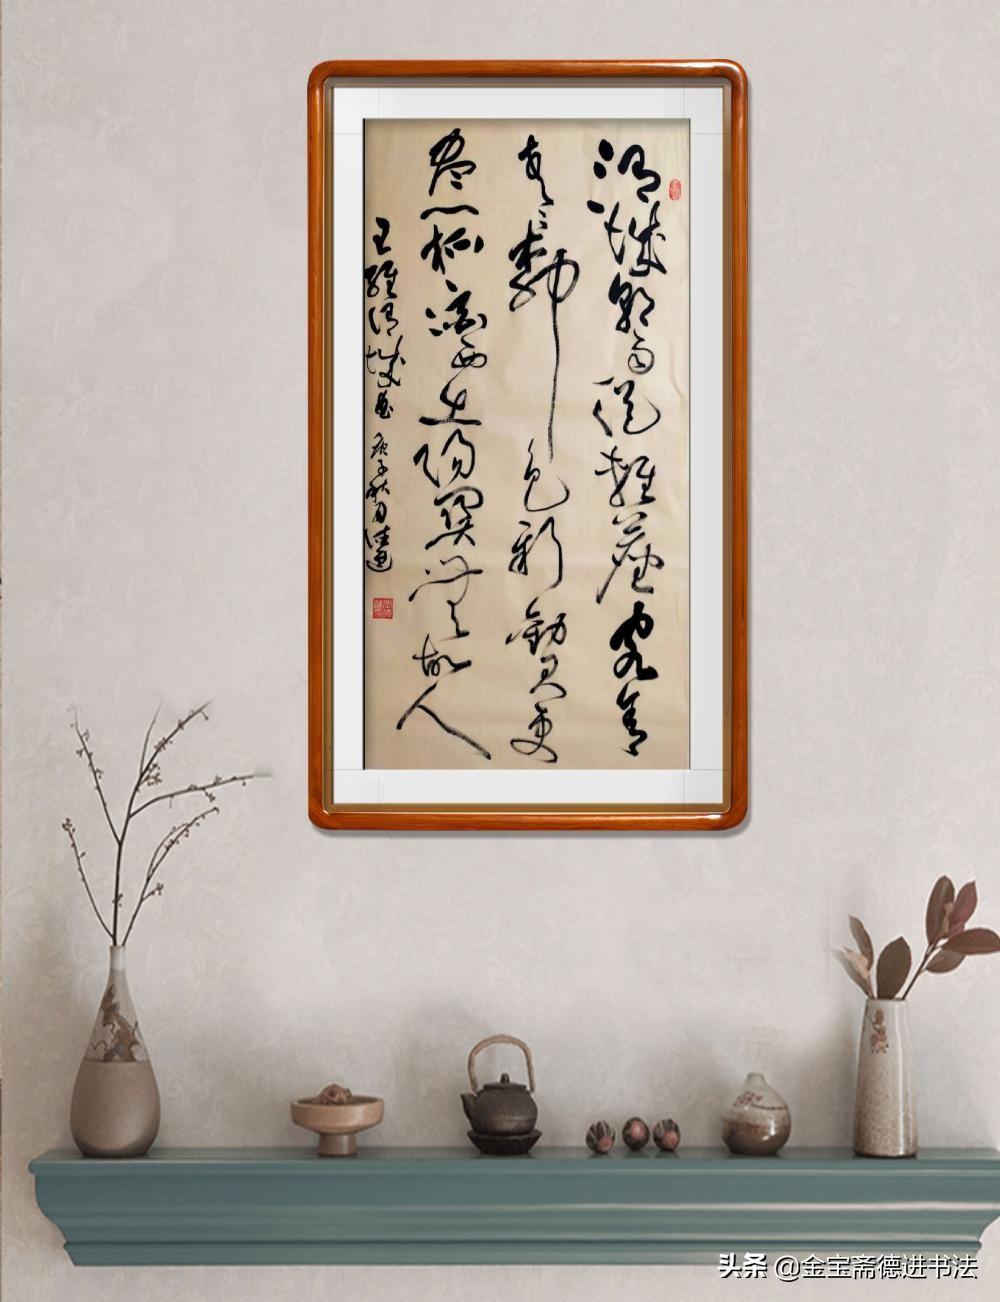 渭城朝雨浥輕塵客舍
青青柳色新勸君更
盡一杯酒西出陽關無故人
王維渭城曲 庚子秋月德進
头条 @金宝斋德进书法